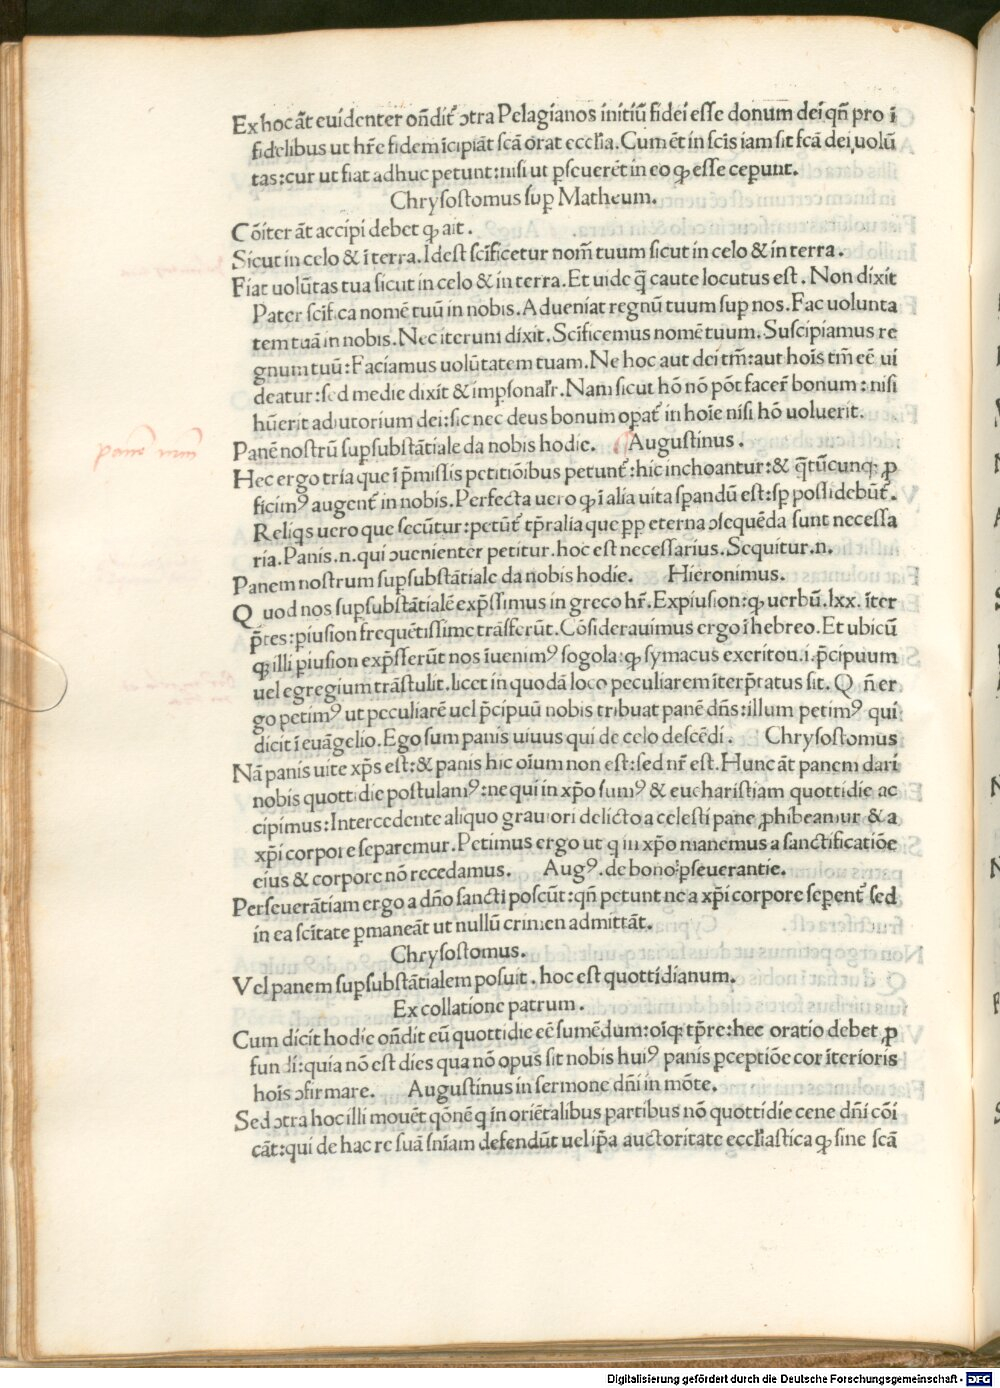 Ex hoc āt euidenter oñdit᷑ ↄtra Pelagianos initiū fidei esse donum dei qñ pro ī
fidelibus ut hr̃e fidem īcipiāt scā orat eccl̃ia. Cum ēt in scīs iam sit fcā dei uolū
tas: cur ut fiat adhuc petunt: nisi ut ꝑseuerēt in eo ꝙ esse ceperunt.
Chrysostomus suꝑ Matheum.
Cōiter āt accipi debet ꝙ ait.
Sicut in celo & ī terra. Idest scīficetur nom̄ tuum sicut in celo & in terra.
Fiat uolūtas tua sicut in celo & in terra. Et uide q̄ caute locutus est. Non dixit
Pater scīfica nomē tuū in nobis. Adueniat regnū tuum sup nos. Fac uolunta
tem tuā in nobis. Nec iterum dixit. Scīficemus nomē tuum. Suscipiamus re
gnum tuū: Faciamus uolūtatem tuam. Ne hoc aut dei tm̄: aut hoīs tm̄ eē ui
deatur: sed medie dixit & impsonalr̃. Nam sicut hō nō pōt facer̃ bonum: nisi
hūerit adiutorium dei: sic nec deus bonum opat᷑ in hoīe nisi hō uoluerit.
Panē nostrū supsubstātiale da nobis hodie. Augustinus.
panē nrm̄
Hec ergo tria que ī p̄missis petitiōibus petunt᷑: hic inchoantur: & q̄tūcunqꝫ ꝓ
ficimꝰ augent᷑ in nobis. Perfecta uero ꝙ ī alia uita spandū est: sp possidebūt᷑.
Reliqs uero que secūtur: petūt᷑ tp̄ralia que pp eterna ↄsequēda sunt necessa
ria. Panis .n. qui ↄuenienter petitur. hoc est necessarius. Sequitur .n.
Panem nostrum supsubstātiale da nobis hodie. Hieronimus.
Quod nos supsubstātialē exp̄ssimus in greco hr̃. Expiusion: ꝙ uerbū .lxx. īter
p̄tes: piusion frequētissime trāsferūt. Cōsiderauimus ergo ī hebreo. Et ubicū
ꝙ illi piusion exp̄sserūt nos īuenimꝰ sogola: ꝙ symacus exeriton .i. p̄cipuum
uel egregium trāstulit. licet in quodā loco peculiarem īterp̄tatus sit. Qñ er
go petimꝰ ut peculiarē uel p̄cipuū nobis tribuat panē dñs: illum petimꝰ qui
dicit ī euāgelio. Ego sum panis uiuus qui de celo descēdi. Chrysostomus
Nā panis uite xp̄s est: & panis hic oīum non est: sed nr̃ est. Hunc āt panem dari
nobis quottidie postulamꝰ: ne qui in xp̄o sumꝰ & eucharistiam quottidie ac
cipimus: Intercedente aliquo grauiori delicto a celesti pane ꝓhibeamur & a
xp̄i corpore separemur. Petimus ergo ut q in xp̄o manemus a sanctificatiōe
eius & corpore nō recedamus. Augꝰ. de bono pseuerantie.
Perseuerātiam ergo a dño sancti poscūt: qñ petunt ne a xp̄i corpore sepent᷑ sed
in ea scītate ꝑmaneāt ut nullū crimen admittāt.
Chrysostomus.
Vel panem supsubstātialem posuit. hoc est quottidianum.
Ex collatione patrum.
Cum dicit hodie oñdit eū quottidie eē sumēdum: oīqꝫ tp̄re: hec oratio debet ꝓ
fundi: quia nō est dies qua nō opus sit nobis huiꝰ panis ꝑceptiōe cor īterioris
hoīs ↄfirmare. Augustinus in sermone dñi in mōte.
Sed ↄtra hoc illi mouēt qōnē q in oriētalibus partibus nō quottidie cene dñi cōi
cāt: qui de hac re suā sn̄iam defendūt uel ip̄a auctoritate eccl̃iastica ꝙ sine scā
Digitalisierung gefördert durch die Deutsche Forschungsgemeinschaft - DFG